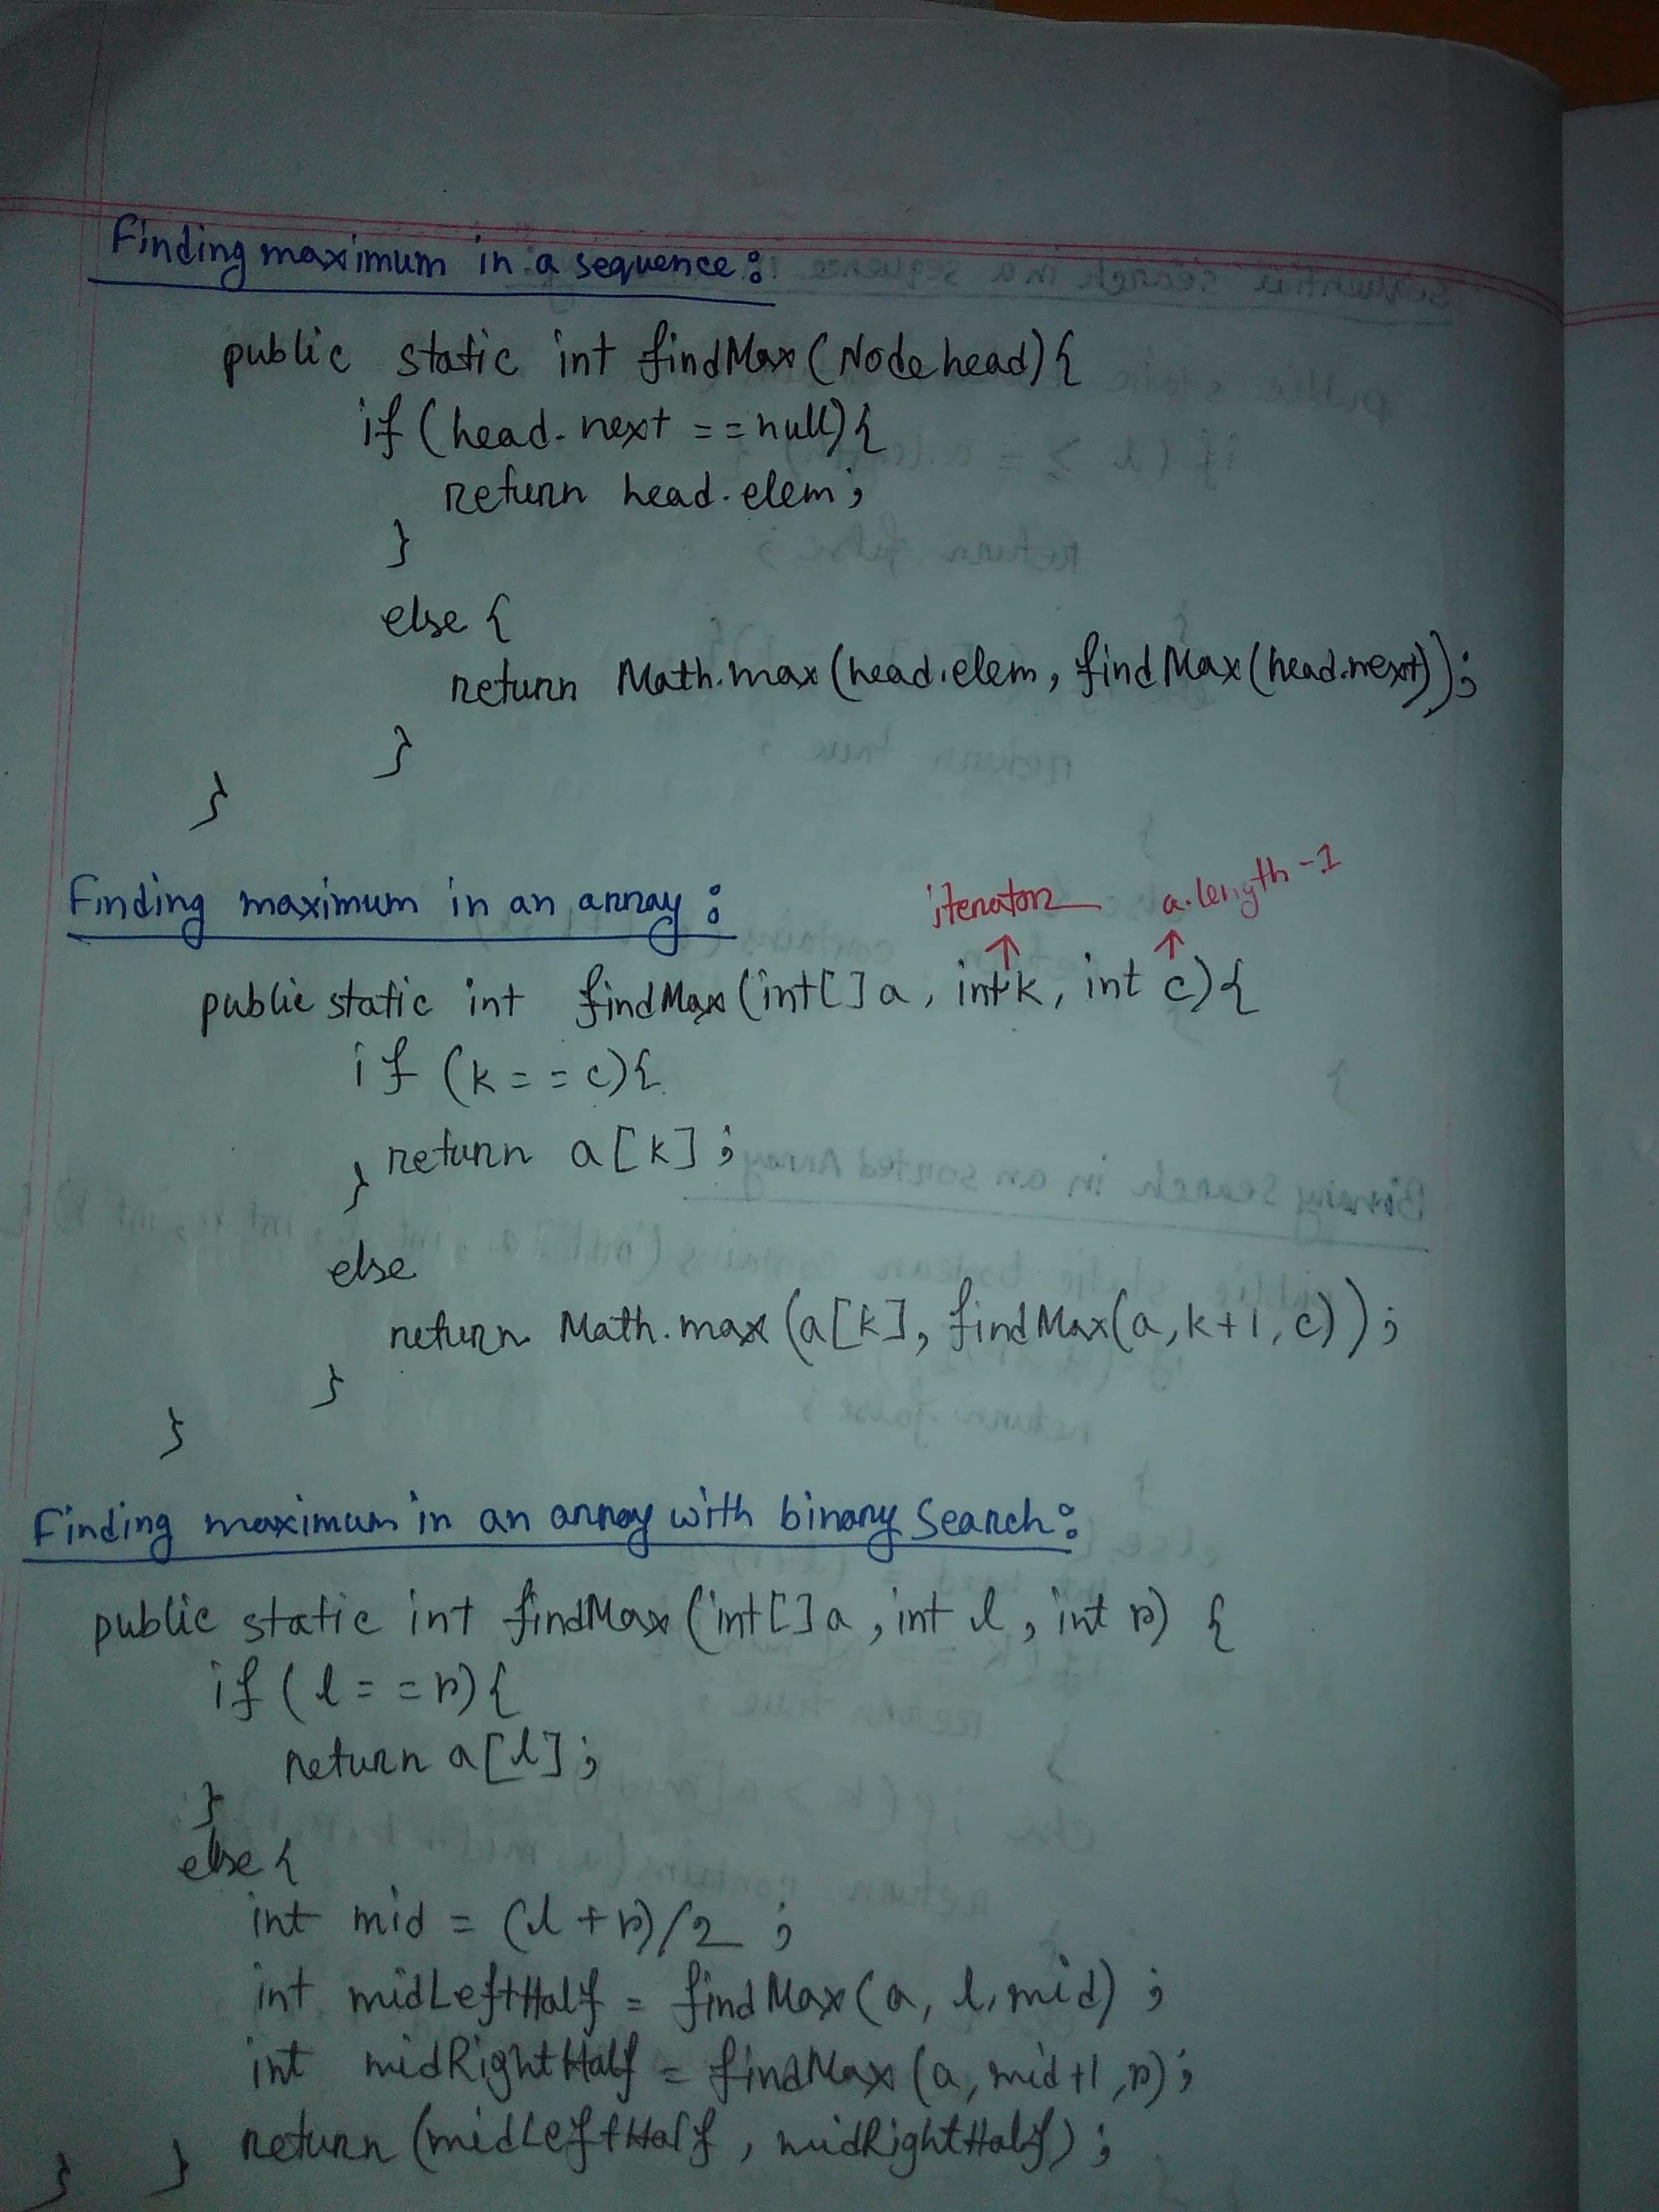 Finding maximum in a sequence:
public static int findMax(Node head){
if (head.next == null){
return head.elem;
}
else {
return Math.max(head.elem, findMax(head.next));
}
}
Finding maximum in an array:
iterator a.length-1
public static int findMax(int[] a, int k, int c){
if (k == c){
return a[k];
}
else
return Math.max(a[k], findMax(a, k+1, c));
}
}
Finding maximum in an array with binary Search:
public static int findMax(int[] a, int l, int r) {
if (l == r){
return a[l];
}
else {
int mid = (l + r)/2 ;
int midLeftHalf = findMax(a, l, mid) ;
int midRightHalf = findMax(a, mid+1, r);
} } return (midLeftHalf, midRightHalf) ;